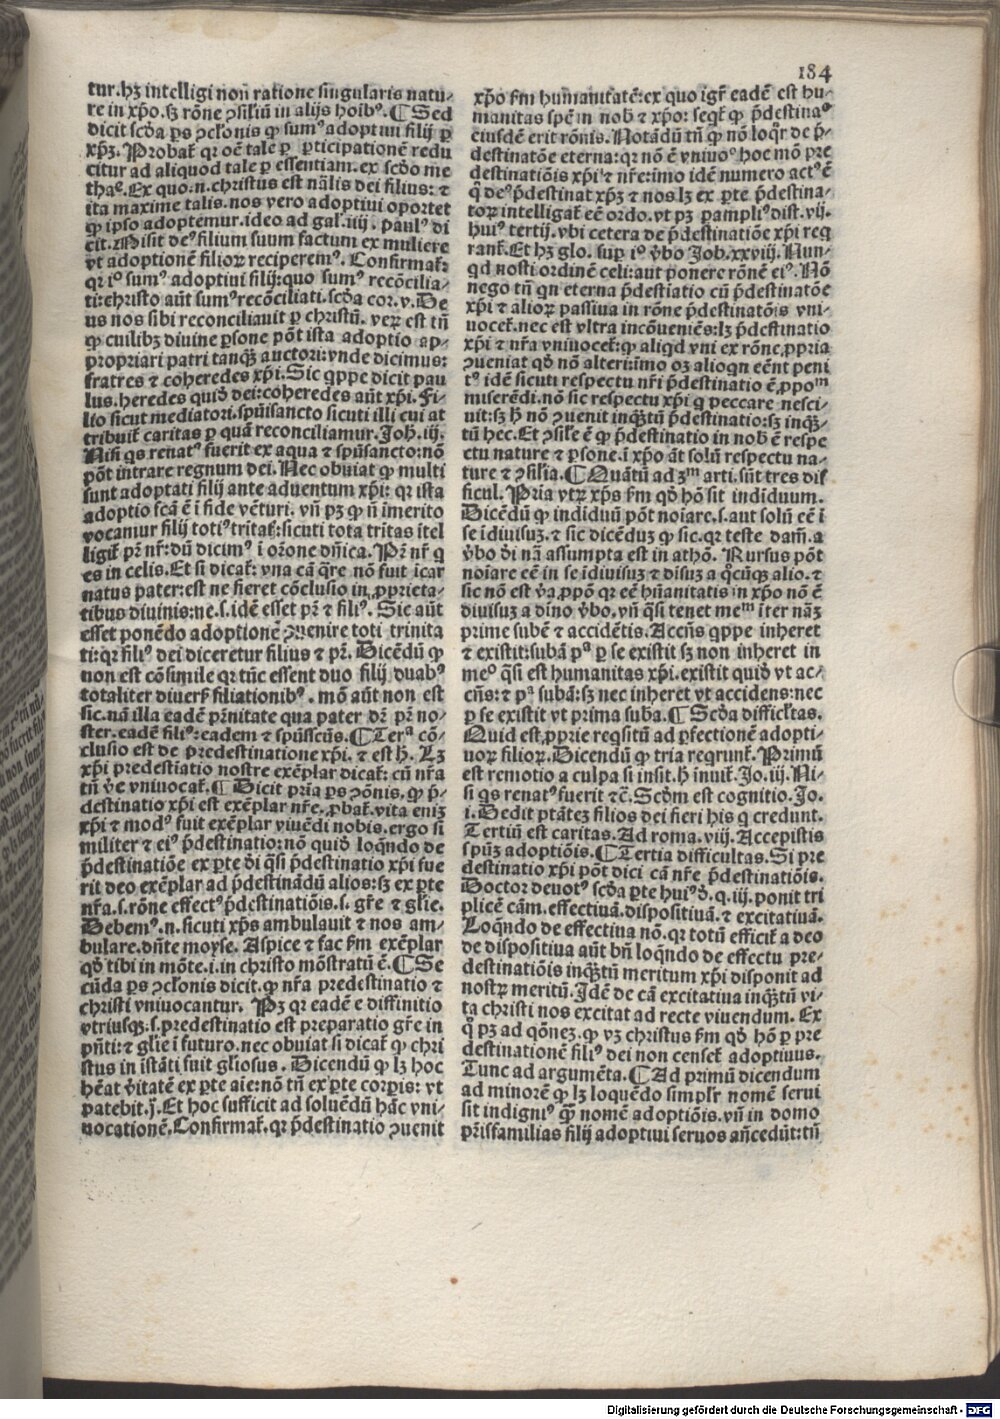 184
tur.hꝫ intelligi non̄ ratione singularis natu⸗
re in xp̄o.sꝫ rōne ꝯsiliū in alijs hoībꝰ. ¶ Sed
dicit scḋa ps ꝯclōnis ꝙ sumꝰ adoptiui filij ꝑ
xp̄ꝫ. Probat̄ qr oē tale ꝑ ꝑticipationē redu
citur ad aliquod tale ꝑ essentiam.ex scḋo me
thaᵉ. Ex quo.n.christus est nālis dei filius: ⁊
ita maxime talis.nos vero adoptiui oportet
ꝙ ipso adoptemur.ideo ad gal.iiij. paulꝰ di
cit. Misit deꝰ filium suum factum ex muliere
vt adoptionē filioꝝ reciperemꝰ. Confirmat̄:
qr iᵒ sumꝰ adoptiui filij: quo sumꝰ recōcilia⸗
ti: christo aūt sumꝰ recōciliati.scḋa cor.v. De
us nos sibi reconciliauit ꝑ christū. veꝝ est tn̄
ꝙ cuilibꝫ diuine ꝑsone pōt ista adoptio ap⸗
propriari patri tanqꝫ auctori: vnde dicimus:
fratres ⁊ coheredes xp̄i. Sic qppe dicit pau
lus.heredes quiḋ dei: coheredes aūt xp̄i. Fi⸗
lio sicut mediatori.spūisancto sicuti illi cui at
tribuit̄ caritas ꝑ quā reconciliamur. Joh̄.iij.
Nisi qs renatꝰ fuerit ex aqua ⁊ spūsancto: nō
pōt intrare regnum dei. Nec obuiat ꝙ multi
sunt adoptati filij ante aduentum xp̄i: qr ista
adoptio fcā ē ī fide vēturi. vn̄ pꝫ ꝙ n̄ imerito
vocamur filij totiꝰ trītat̄: sicuti tota trītas ītel
ligit̄ pr̄ nr̄: dū dicimꝰ ī orōne dn̄ica. Pr̄ nr̄ q
es in celis. Et si dicat̄: vna cā q̄re nō fuit īcar
natus pater: est ne fieret cōclusio in ꝓprieta⸗
tibus diuinis: ne.s. idē esset pr̄ ⁊ filiꝰ. Sic aūt
esset ponēdo adoptionē ꝯuenire toti trinita
ti: qr filiꝰ dei diceretur filius ⁊ pr̄. Dicēdū ꝙ
non est cōsimile qr tūc essent duo filij duabꝰ
totaliter diuerſ filiationibꝰ. mō aūt non est
sic. nā illa eadē pr̄nitate qua pater dr̄ pr̄ no⸗
ster. eadē filiꝰ: eadem ⁊ spūscūs. ¶ Terᵃ cō⸗
clusio est de predestinatione xp̄i. ⁊ est ħ. Lꝫ
xp̄i predestiatio nostre exēplar dicat̄: cū nr̄a
tn̄ v̄e vniuocat̄. ¶ Dicit pria ps ꝯōnis. ꝙ p̄⸗
destinatio xp̄i est exēplar nr̄e. ꝓbat̄. vita eniꝫ
xp̄i ⁊ modꝰ fuit exēplar viuēdi nobis. ergo si
militer ⁊ eiꝰ p̄destinatio: nō quiḋ loqn̄do de
p̄destinatiōe ex ꝑte ḋi q̄si p̄destinatio xp̄i fue
rit deo exēplar ad p̄destinādū alios: sꝫ ex ꝑte
nr̄a.s. rōne effectꝰ p̄destinatiōis.s. gr̄e ⁊ gl̄ie.
Debemꝰ.n. sicuti xp̄s ambulauit ⁊ nos am⸗
bulare. dn̄te moyse. Aspice ⁊ fac ẜm exēplar
qḋ tibi in mōte.i. in christo mōstratū ē. ¶ Se
cūda ps ꝯclonis dicit. ꝙ nr̄a predestinatio ⁊
christi vniuocantur. Pꝫ qr eadē e diffinitio
vtriusqꝫ.s. predestinatio est preparatio gr̄e in
pn̄ti: ⁊ gl̄ie ī futuro. nec obuiat si dicat̄ ꝙ chri
stus in īstāti fuit gl̄iosus. Dicendū ꝙ lꝫ hoc
hēat v̄itatē ex ꝑte aīe: nō tn̄ ex ꝑte corꝑis: vt
patebit.j. Et hoc sufficit ad soluēdū hāc vni⸗
uocationē. Confirmat̄. qr p̄destinatio ꝯuenit
xp̄o ẜm humanitatē: ex quo igr̄ eadē est hu⸗
manitas spēm in nob̄ ⁊ xp̄o: seqt̄ ꝙ p̄destinaᵒ
eiusdē erit rōnis. Notādū tn̄ ꝙ nō loqr̄ de p̄⸗
destinatōe eterna: qr nō ē vniuoᵉ hoc mō pre
destinatiōis xp̄i ⁊ nr̄e: imo idē numero actꝰ ē
q̄ deꝰ p̄destinat xp̄ꝫ ⁊ nos lꝫ ex ꝑte p̄destina⸗
toꝝ intelligat̄ eē ordo. vt pꝫ ꝑampliꝰ dist.vij.
huiꝰ tertij. vbi cetera de p̄destinatiōe xp̄i req
rant̄. Et hꝫ glo. suꝑ iᵒ v̄bo Job.xxviij. Nun⸗
qd nosti ordinē celi: aut ponere rōnē eiꝰ. Nō
nego tn̄ qn eterna p̄destiatio cū p̄destinatōe
xp̄i ⁊ alioꝝ passiua in rōne p̄destinatōis vni⸗
uocet̄. nec est vltra incōueniēs: lꝫ p̄destinatio
xp̄i ⁊ nr̄a vniuocet̄: ꝙ aliqd vni ex rōne ꝓpria
ꝯueniat qḋ nō alteri: imo oꝫ alioqn eēnt peni
tꝰ idē sicuti respectu nr̄i p̄destinatio ē ꝓpoᵐ
miserēdi. nō sic respectu xp̄i q peccare nesci⸗
uit: sꝫ ħ nō ꝯuenit inqꝫtū p̄destinatio: sꝫ inqꝫ⸗
tū hec. Et ꝯsil̄e ē ꝙ p̄destinatio in nob ē respe
ctu nature ⁊ ꝑsone. ī xp̄o āt solū respectu na⸗
ture ⁊ ꝯsilia. ¶ Quātū ad 3ᵐ arti. sūt tres dif
ficul. Pria vtꝝ xp̄s ẜm qḋ hō sit indīduum.
Dicēdū ꝙ indiduū pōt noiare.s. aut solū eē ī
se īdiuisuꝫ. ⁊ sic dicēduꝫ ꝙ sic. qr teste dam̄. a
v̄bo ḋi nā assumpta est in athō. Rursus pōt
noiare eē in se īdiuisuꝫ ⁊ diſuꝫ a q̊cūqꝫ alio. ⁊
sic nō est v̄a ꝓpō qr eē hūanitatis in xp̄o nō ē
diuisuꝫ a dīno v̄bo. vn̄ q̄si tenet meᵐ īter nāꝫ
prime subē ⁊ accidētis. Accn̄s qppe inheret
⁊ existit: subā pᵃ ꝑ se existit sꝫ non inheret in
meᵒ q̄si est humanitas xp̄i. existit quiḋ vt ac⸗
cn̄s: ⁊ pᵃ subā: sꝫ nec inheret vt accidens: nec
ꝑ se existit vt prima suba. ¶ Scḋa difficl̄tas.
Quid est ꝓprie reqsitū ad ꝑfectionē adopti⸗
uoꝝ filioꝝ. Dicendū ꝙ tria reqrunt̄. Primū
est remotio a culpa si insit. ħ īnuit̄. Jo.iij. Ni⸗
si qs renatꝰ fuerit ⁊c̄. Scḋm est cognitio. Jo.
i. Dedit ptātēꝫ filios dei fieri his q credunt.
Tertiū est caritas. Ad roma.viij. Accepistis
spūꝫ adoptiōis. ¶ Tertia difficultas. Si pre
destinatio xp̄i pōt dici cā nr̄e p̄destinatiōis.
Doctor deuotꝰ scḋa ꝑte huiꝰ ḋ. q.iij. ponit tri
plicē cām. effectiuā. dispositiuā. ⁊ excitatiuā.
Loqn̄do de effectiua nō. qr totū efficit̄ a deo
de dispositiua aūt bn̄ loqn̄do de effectu pre⸗
destinatiōis inqꝫtū meritum xp̄i disponit ad
nostꝝ meritū. Idē de cā excitatiua inqꝫtū vi⸗
ta christi nos excitat ad recte viuendum. Ex
q̊ pꝫ ad qōneꝫ. ꝙ vꝫ christus ẜm qḋ hō ꝑ pre
destinationē filiꝰ dei non censet̄ adoptiuus.
Tunc ad argumēta. ¶ Ad primū dicendum
ad minorē ꝙ lꝫ loquēdo simpl̄r nomē serui
sit indigniꝰ qꝫ nomē adoptiōis. vn̄ in domo
pr̄isfamilias filij adoptiui seruos an̄cedūt: tn̄
Digitalisierung gefördert durch die Deutsche Forschungsgemeinschaft - DFG